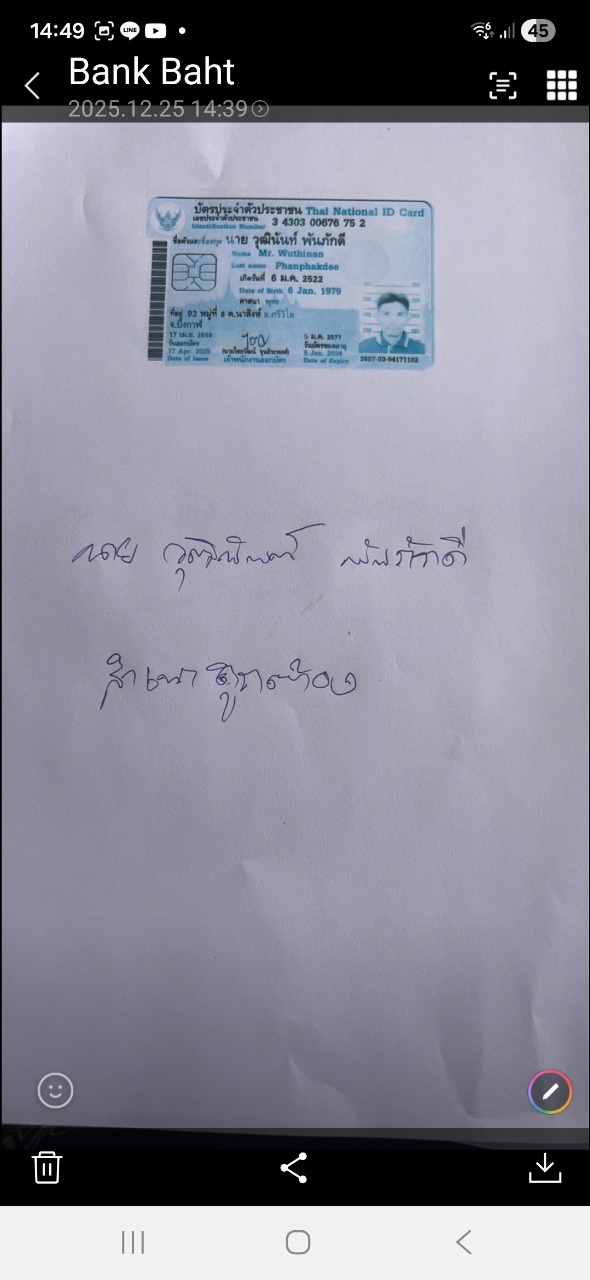 14:49
LINE
6
45
Bank Baht
2025.12.25 14:39
บัตรประจำตัวประชาชน Thai National ID Card
เลขประจำตัวประชาชน
Identification Number 3 4303 00676 75 2
ชื่อตัวและชื่อสกุล นาย วุฒินันท์ พันภักดี
Name Mr. Wuthinan
Last name Phanphakdee
เกิดวันที่ 6 ม.ค. 2522
Date of Birth 6 Jan. 1979
ศาสนา พุทธ
ที่อยู่ 93 หมู่ที่ 8 ต.นาสิงห์ อ.ศรีวิไล
จ.บึงกาฬ
17 เม.ย. 2568
วันออกบัตร
17 Apr. 2025
Date of Issue
เจ้าพนักงานออกบัตร
5 ม.ค. 2577
วันบัตรหมดอายุ
5 Jan. 2034
Date of Expiry
3807-03-04171102
นาย วุฒินันท์ พันภักดี
สำเนาถูกต้อง